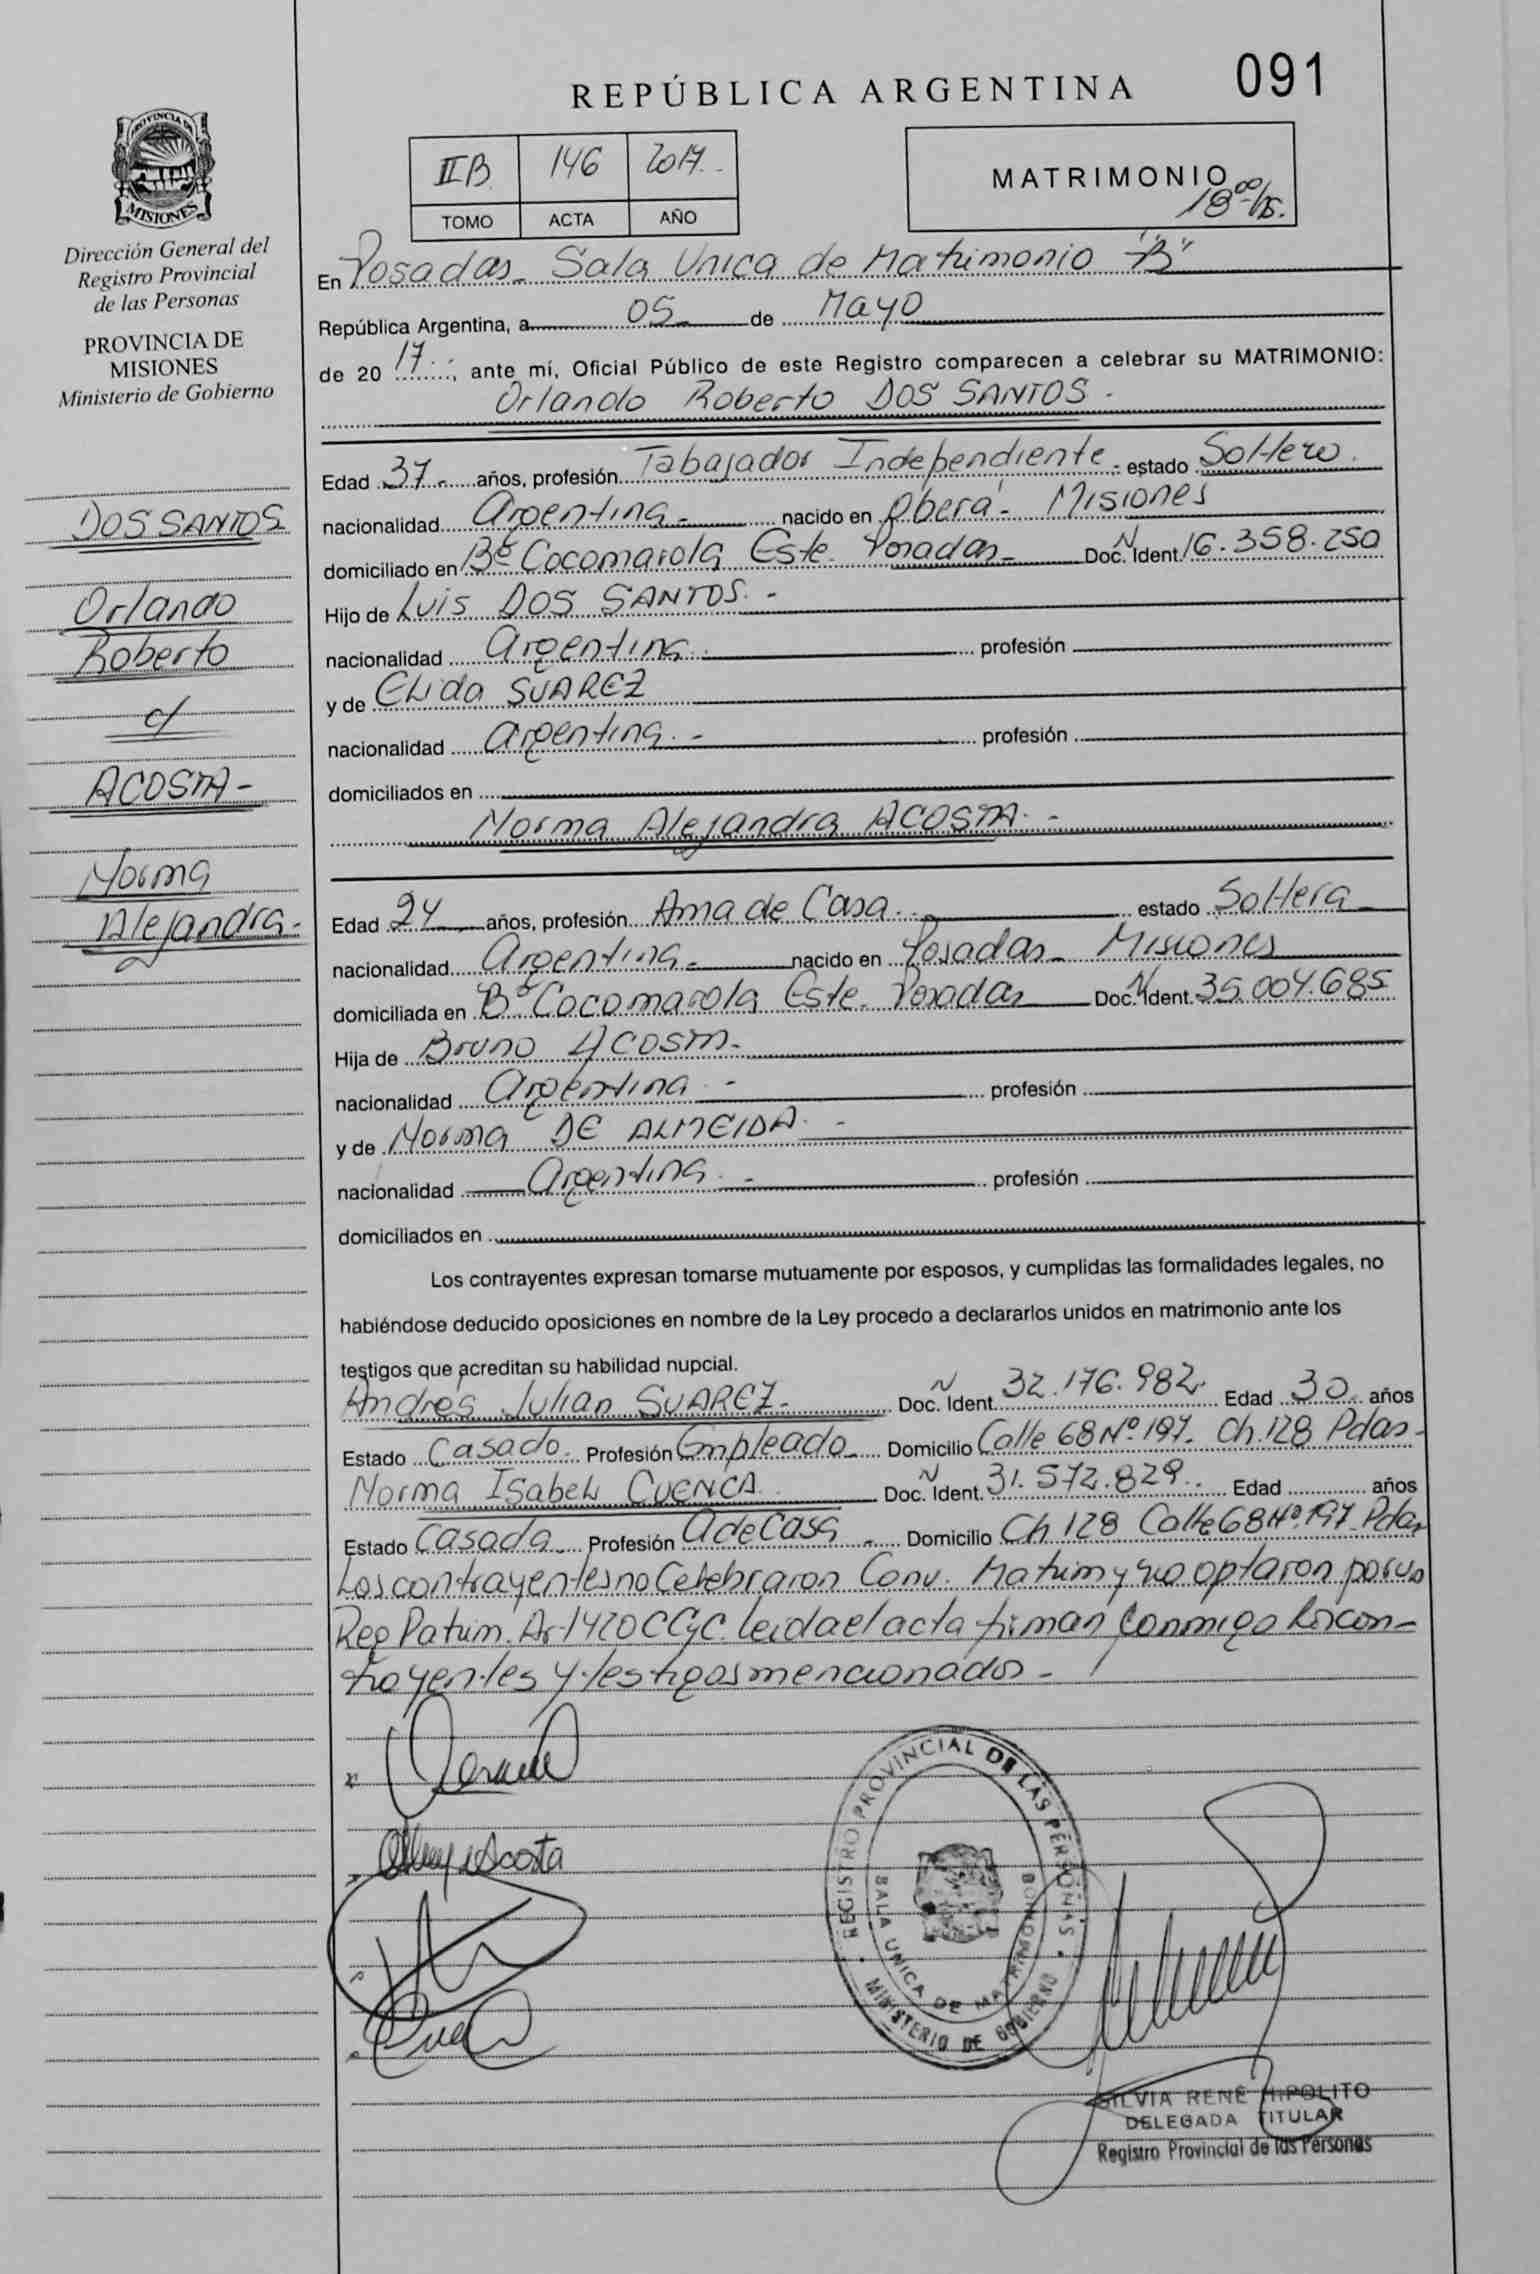 091
REPÚBLICA ARGENTINA
IIB. 146 2017.-
TOMO ACTA AÑO
MATRIMONIO
18.00 hs.
PROVINCIA DE
MISIONES
Dirección General del
Registro Provincial
de las Personas
PROVINCIA DE
MISIONES
Ministerio de Gobierno
DOS SANTOS
Orlando
Roberto
c/
ACOSTA-
Norma
Alejandra.-
En Posadas- Sala Unica de Matrimonio "B"
República Argentina, a 05- de Mayo
de 20 17.-, ante mí, Oficial Público de este Registro comparecen a celebrar su MATRIMONIO:
Orlando Roberto DOS SANTOS.-
Edad 37.- años, profesión Tabajador Independiente.- estado Soltero.
nacionalidad Argentina.- nacido en Oberá- Misiones
domiciliado en Bº Cocomarola Este. Posadas- Doc. N Ident. 16.358.250
Hijo de Luis DOS SANTOS.-
nacionalidad Argentina. profesión
y de Elida SUAREZ
nacionalidad Argentina.- profesión
domiciliados en
Norma Alejandra ACOSTA.-
Edad 24 años, profesión Ama de Casa.- estado Soltera-
nacionalidad Argentina.- nacido en Posadas- Misiones
domiciliada en Bº Cocomarola Este. Posadas Doc. N Ident. 35.004.685
Hija de Bruno ACOSTA.-
nacionalidad Argentina.- profesión
y de Norma DE ALMEIDA.-
nacionalidad Argentina.- profesión
domiciliados en
Los contrayentes expresan tomarse mutuamente por esposos, y cumplidas las formalidades legales, no
habiéndose deducido oposiciones en nombre de la Ley procedo a declararlos unidos en matrimonio ante los
testigos que acreditan su habilidad nupcial.
Andrés Julian SUAREZ- Doc. N Ident. 32.176.982. Edad 30. años
Estado Casado. Profesión Empleado- Domicilio Calle 68 Nº 197- Ch. 128 Pdas-
Norma Isabel CUENCA. Doc. N Ident. 31.572.829.- Edad años
Estado Casada- Profesión AdeCasa.- Domicilio Ch 128 Calle 68 Nº 197-Pdas
Los contrayentes no Celebraron Conv. Matrim y no optaron por un
Reg Patrim. Ar-1420 CCyC. leida el acta firman conmigo los con-
trayentes y testigos mencionados-
Acosta
REGISTRO PROVINCIAL DE LAS PERSONAS
SALA UNICA DE MATRIMONIO B
MINISTERIO DE GOBIERNO
SILVIA RENÉ HIPOLITO
DELEGADA TITULAR
Registro Provincial de las Personas